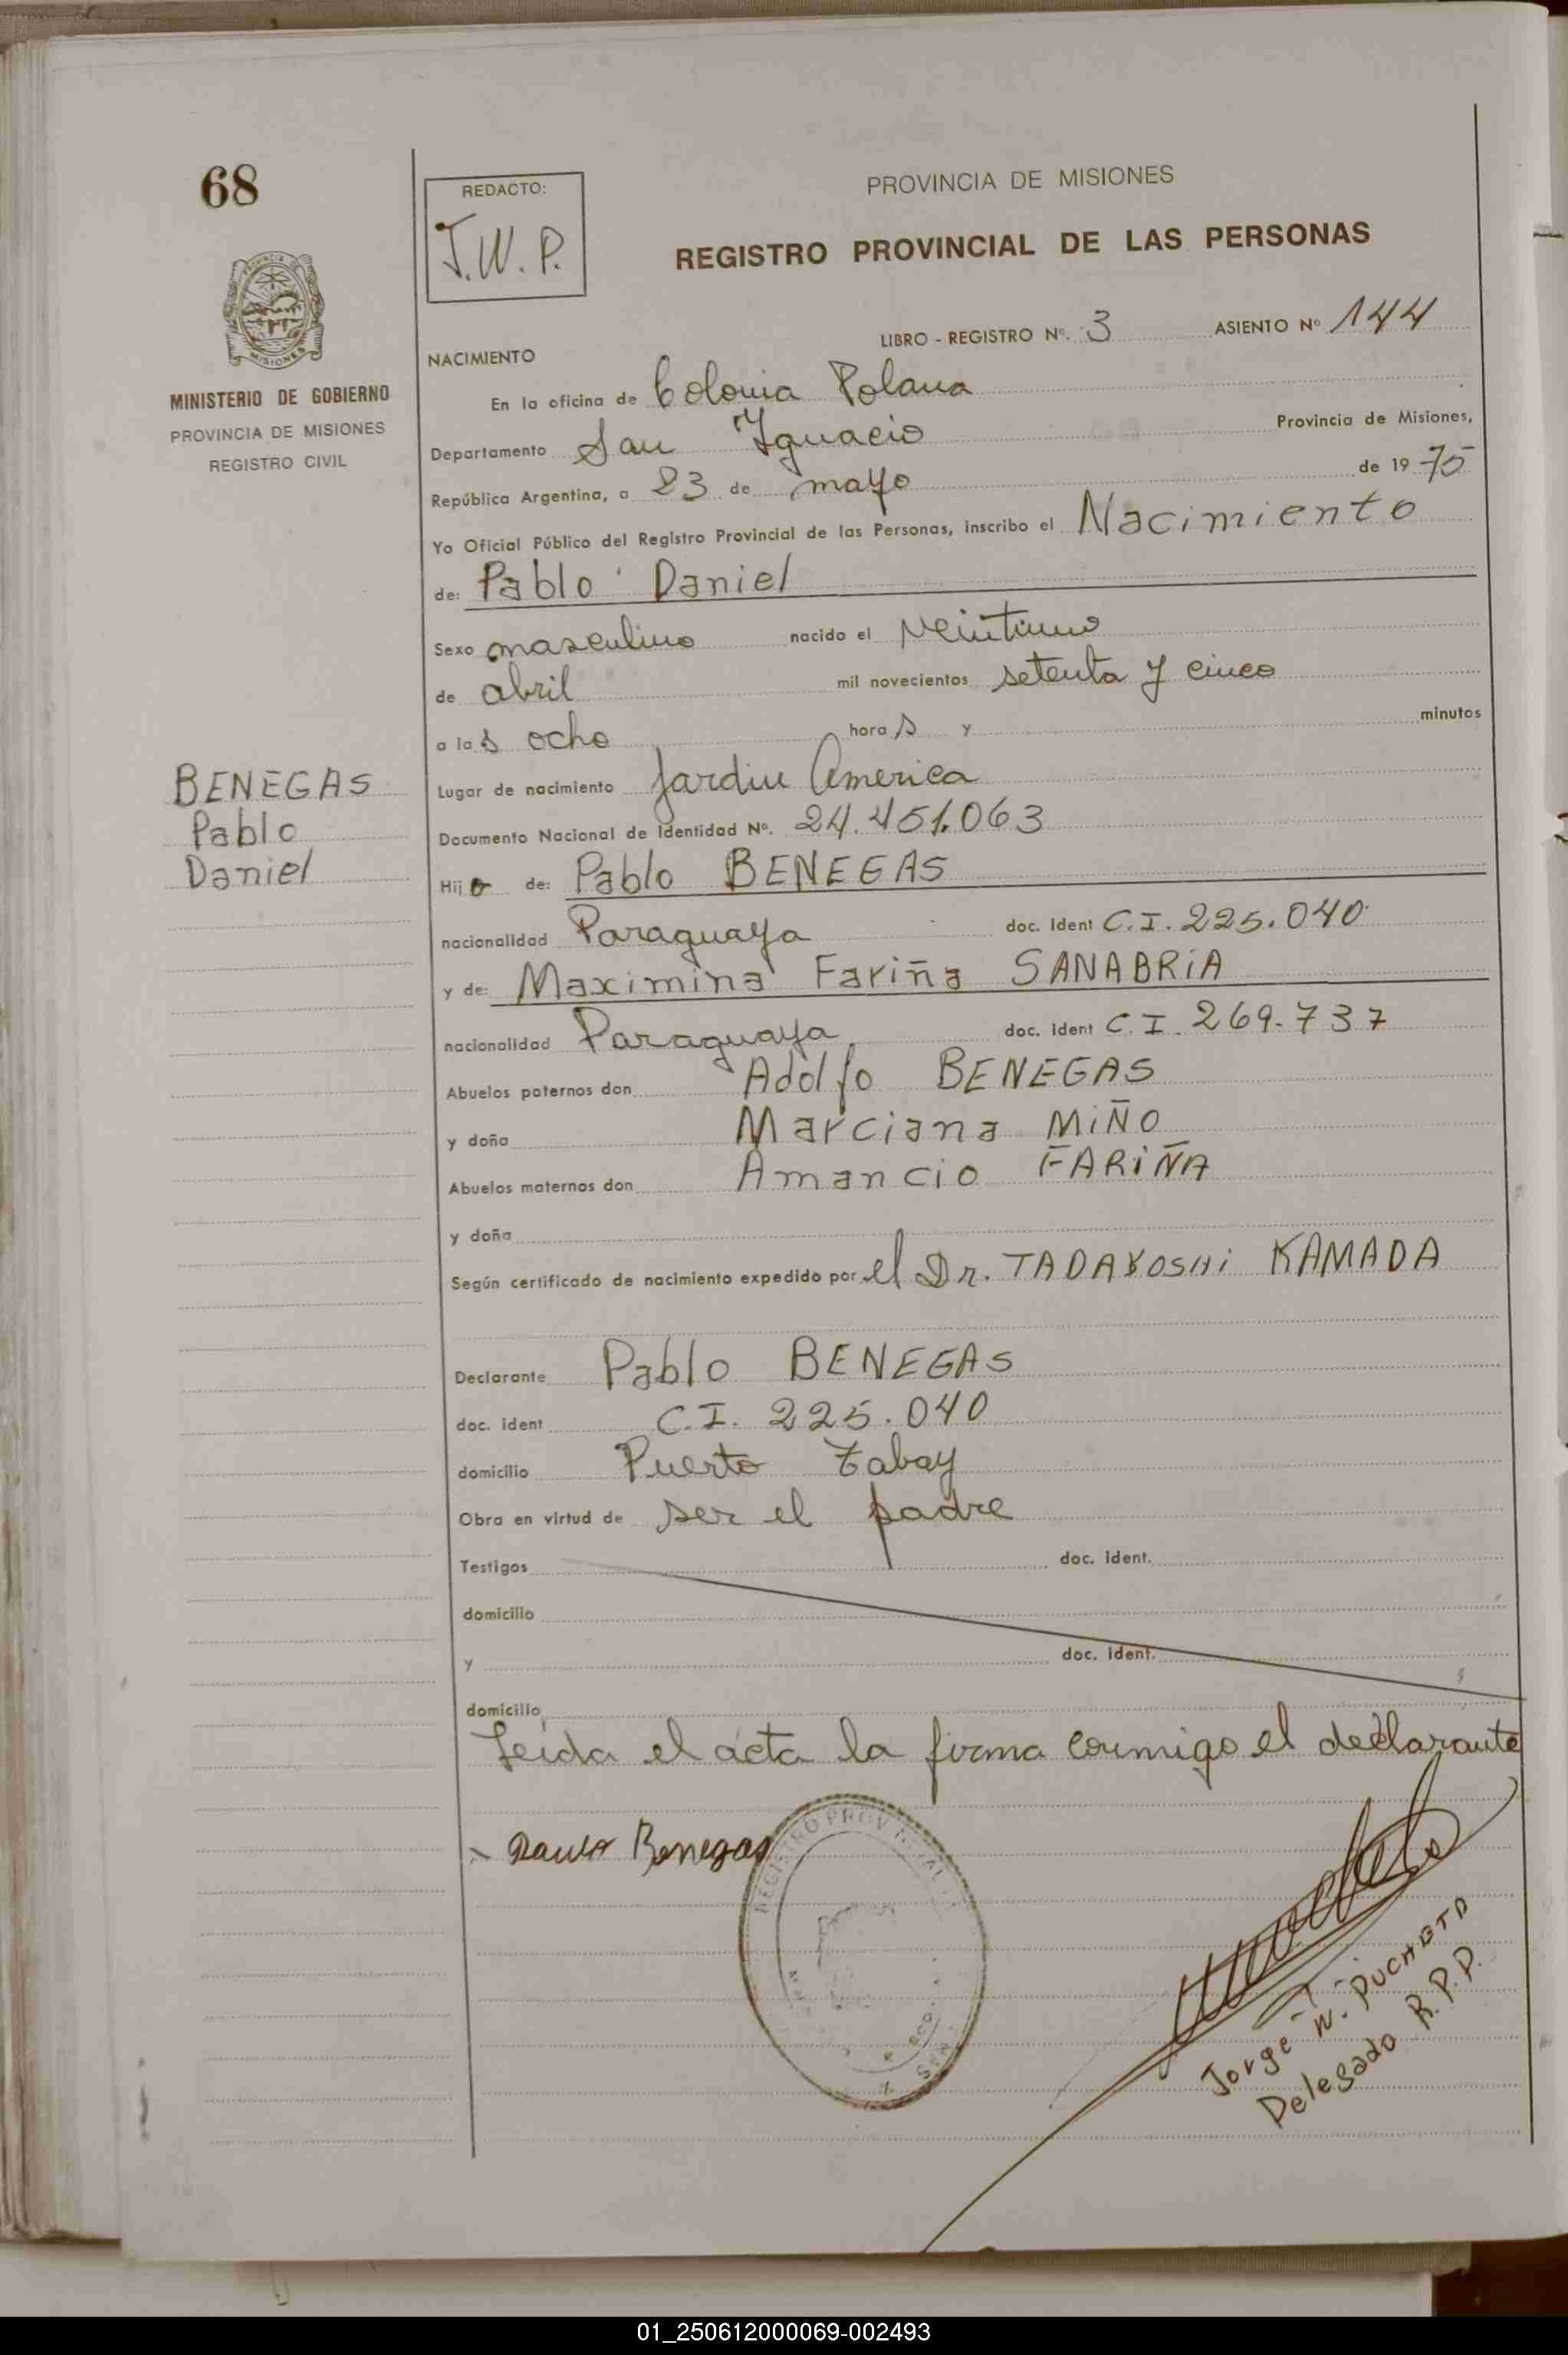 68
REDACTO:
J.W.P.
PROVINCIA DE MISIONES
REGISTRO PROVINCIAL DE LAS PERSONAS
LIBRO - REGISTRO Nº. 3 ASIENTO Nº 144
MINISTERIO DE GOBIERNO
PROVINCIA DE MISIONES
REGISTRO CIVIL
NACIMIENTO
En la oficina de Colonia Polana
Departamento San Ygnacio Provincia de Misiones,
República Argentina, a 23 de mayo de 1975
Yo Oficial Público del Registro Provincial de las Personas, inscribo el Nacimiento
de: Pablo Daniel
Sexo masculino nacido el veintiuno
de abril mil novecientos setenta y cinco
a las ocho horas y minutos
Lugar de nacimiento Jardin America
Documento Nacional de Identidad Nº. 24.451.063
BENEGAS
Pablo
Daniel
Hijo de: Pablo BENEGAS
nacionalidad Paraguaya doc. Ident C.I. 225.040
y de: Maximina Fariña SANABRIA
nacionalidad Paraguaya doc. ident C.I. 269.737
Abuelos paternos don Adolfo BENEGAS
y doña Marciana MIÑO
Abuelos maternos don Amancio FARIÑA
y doña
Según certificado de nacimiento expedido por el Dr. TADAYOSHI KAMADA
Declarante Pablo BENEGAS
doc. ident C.I. 225.040
domicilio Puerto Tabay
Obra en virtud de ser el padre
Testigos doc. ident.
domicilio
y doc. ident.
domicilio
Leida el acta la firma conmigo el declarante
Benegas
REGISTRO PROV
Jorge W. PUCHETA
Delegado R.P.P.
01_250612000069-002493